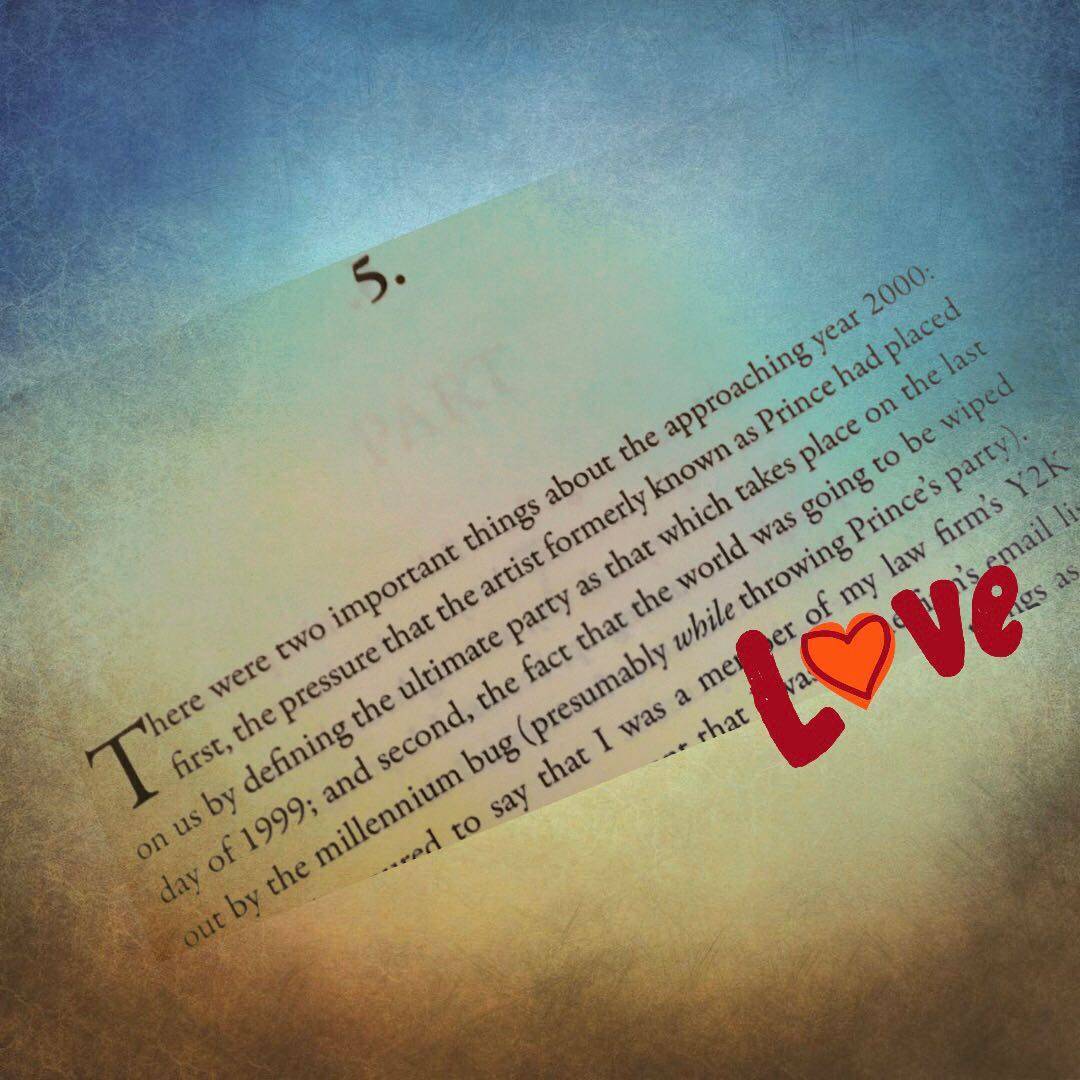 5.
PART
There were two important things about the approaching year 2000:
first, the pressure that the artist formerly known as Prince had placed
on us by defining the ultimate party as that which takes place on the last
day of 1999; and second, the fact that the world was going to be wiped
out by the millennium bug (presumably while throwing Prince's party).
to say that I was a of my law firm's Y2K
that email
as
Love